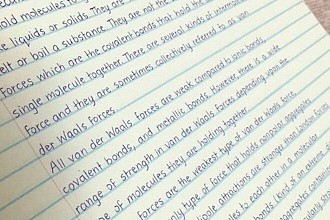 hold molecules to
e liquids or solids. They are
elt or boil a substance. They are not the
forces which are the covalent bonds that hold the
single molecule together. There are several kinds of intermolecular
force and they are sometimes collectively referred to as van
der Waals forces.
All van der Waals forces are weak compared to ionic bonds,
covalent bonds, and metallic bonds. However, there is a wide
range of strength in van der Waals forces depending upon the
of molecules they are holding together.
forces are the weakest type of van der Waals force.
only type of force that holds nonpolar
attractions are stronger than London
to each other in a molecular
kind of an extreme